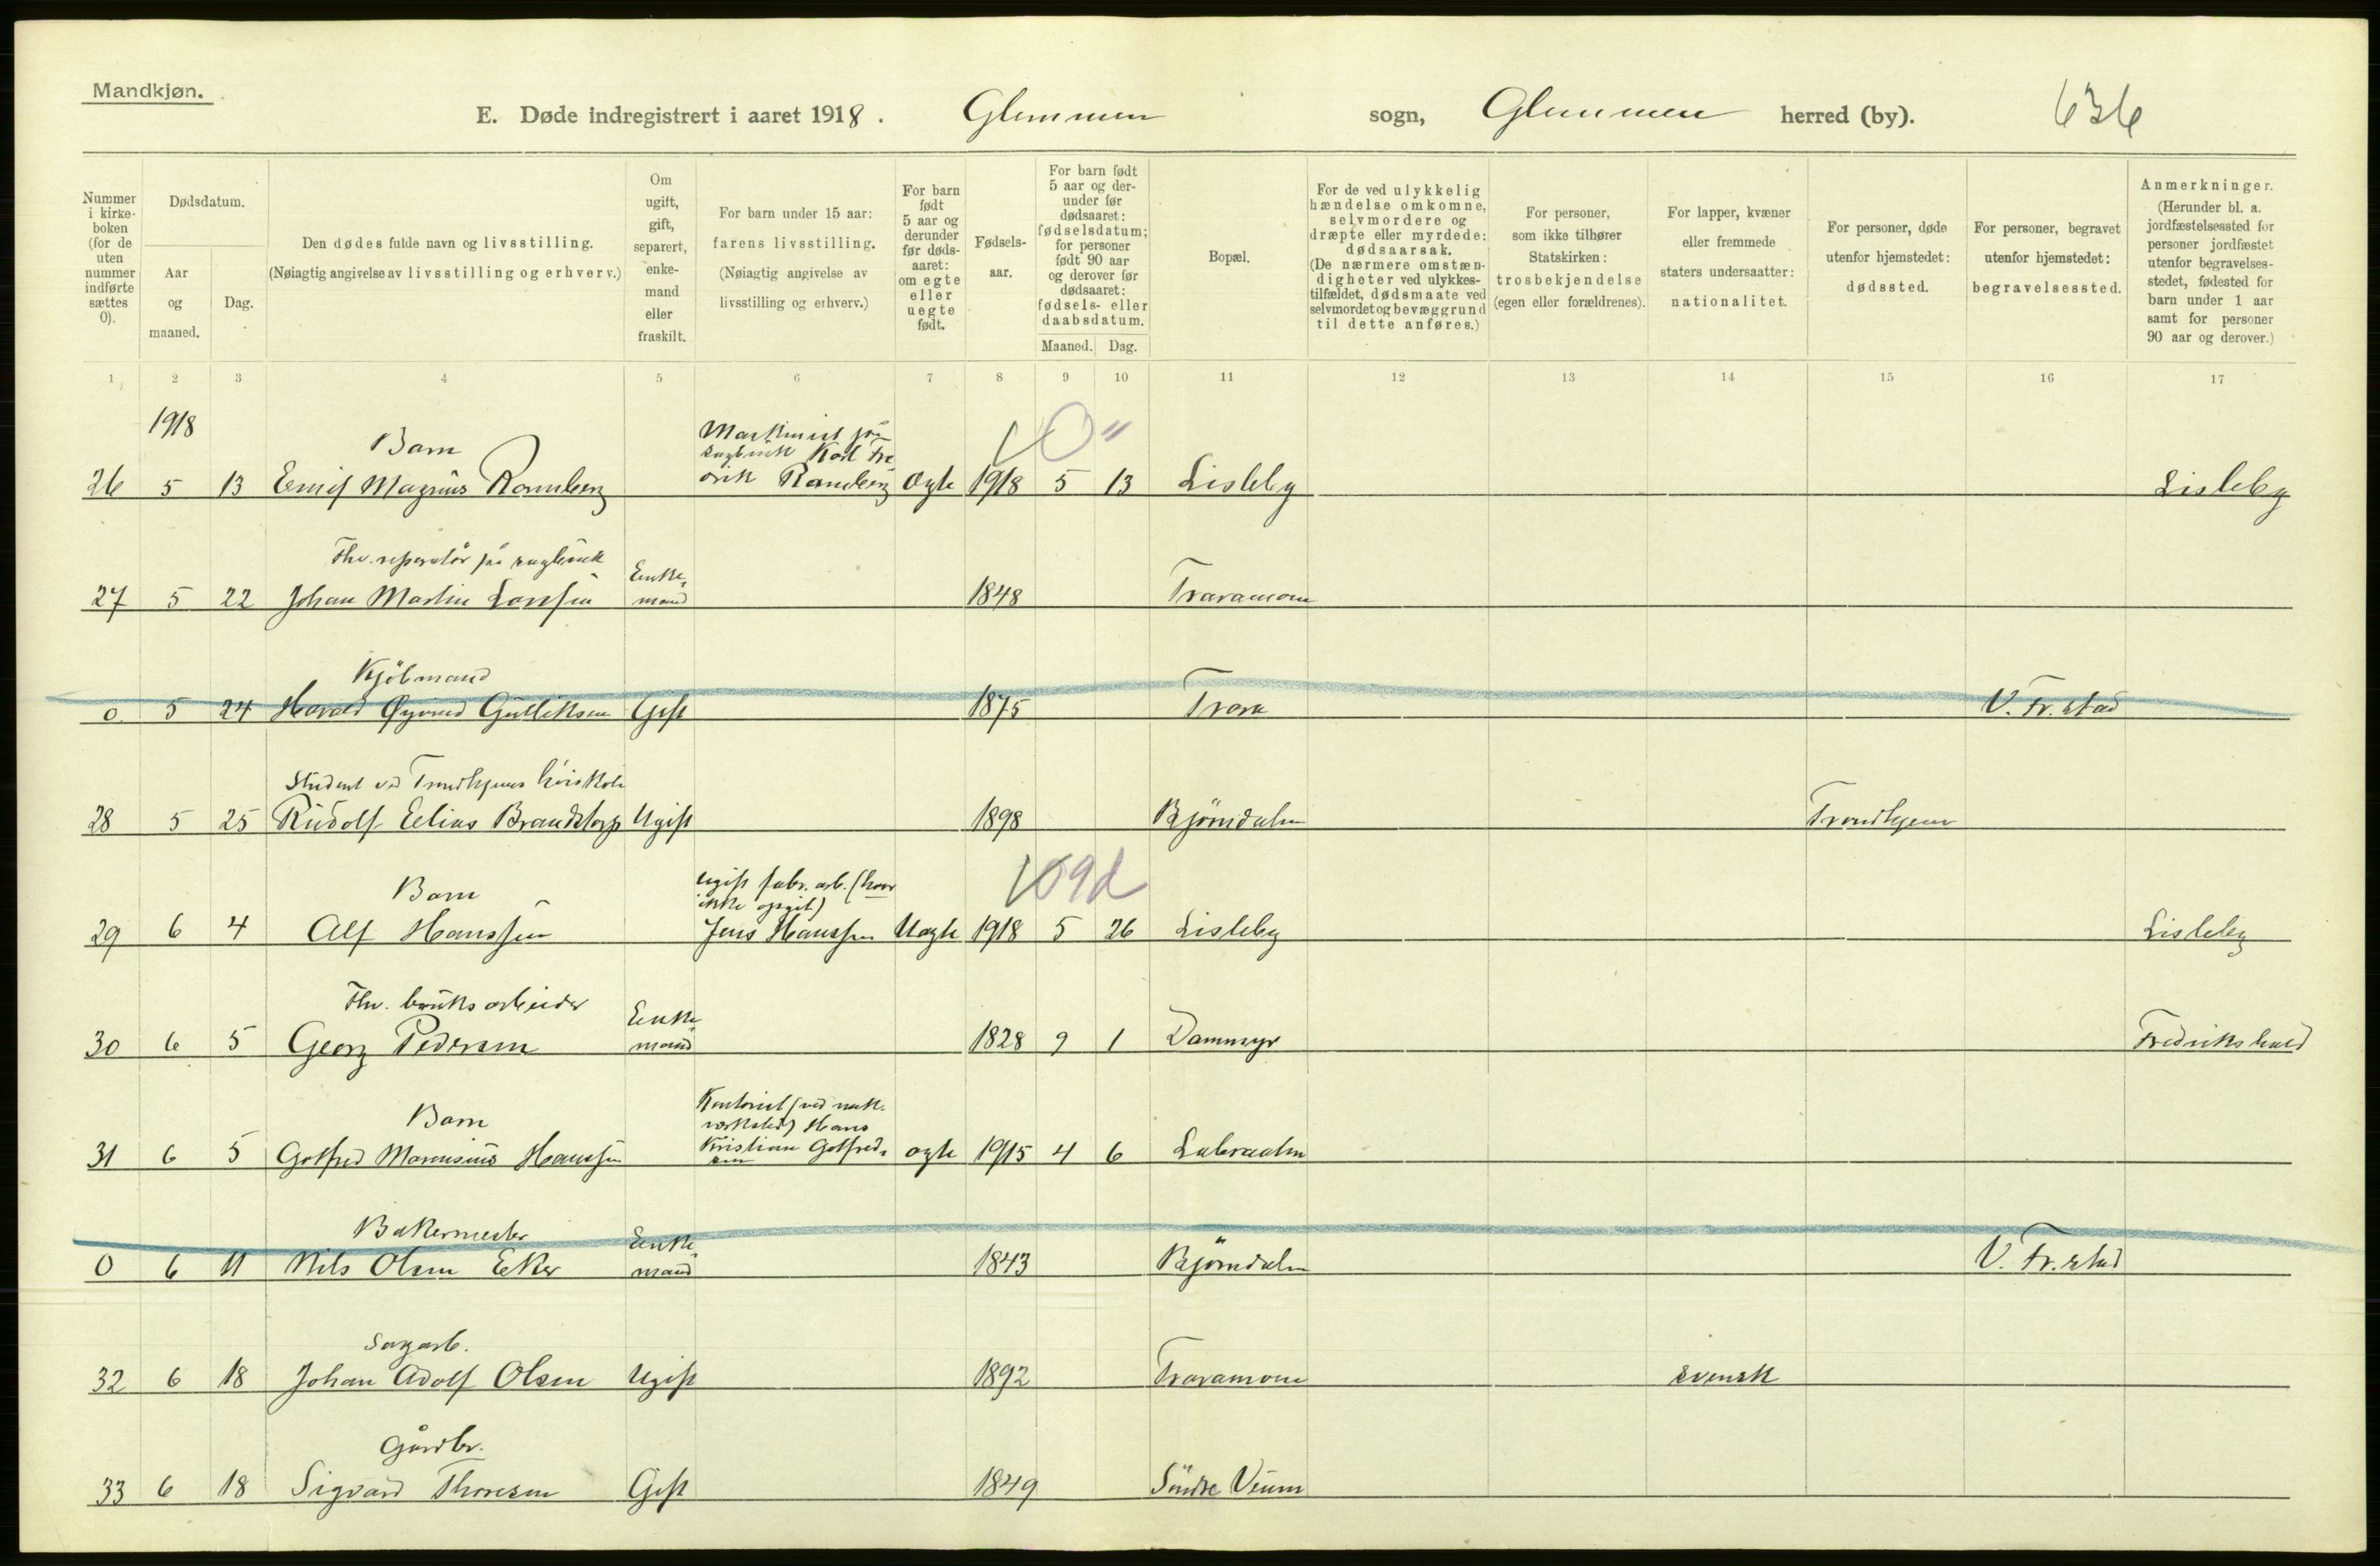 Mandkjøn.
E. Døde indregistrert i aaret 1918. Glemmen sogn, Glemmen herred (by). 636
Nummer i kirke-boken (for de uten nummer indførte sættes 0).
Dødsdatum.
Aar og maaned.
Dag.
Den dødes fulde navn og livsstilling.
(Nøiagtig angivelse av livsstilling og erhverv.)
Om ugift, gift, separert, enke-mand eller fraskilt.
For barn under 15 aar: farens livsstilling.
(Nøiagtig angivelse av livsstilling og erhverv.)
For barn født 5 aar og derunder før døds-aaret: om egte eller uegte født.
Fødsels-aar.
For barn født 5 aar og der-under før dødsaaret: fødselsdatum; for personer født 90 aar og derover før dødsaaret: fødsels- eller daabsdatum.
Maaned. Dag.
Bopæl.
For de ved ulykkelig hændelse omkomne, selvmordere og dræpte eller myrdede: dødsaarsak.
(De nærmere omstæn-digheter ved ulykkes-tilfældet, dødsmaate ved selvmordet og bevæggrund til dette anføres.)
For personer, som ikke tilhører Statskirken: trosbekjendelse (egen eller forældrenes).
For lapper, kvæner eller fremmede staters undersaatter: nationalitet.
For personer, døde utenfor hjemstedet: dødssted.
For personer, begravet utenfor hjemstedet: begravelsessted.
Anmerkninger.
(Herunder bl. a. jordfæstelsessted for personer jordfæstet utenfor begravelses-stedet, fødested for barn under 1 aar samt for personer 90 aar og derover.)
1 2 3 4 5 6 7 8 9 10 11 12 13 14 15 16 17
1918
Barn Maskinist på
sagbruk Karl Fre
26 5 13 Emil Magnus Ramberg drik Ramberg Ægte 1918 5 13 Lisleby Lisleby
Fhv. reparatör på sagbruk Enke-
27 5 22 Johan Martin Larssen mand 1848 Traramoen
Kjöbmand
0 5 24 Harald Øyvind Gulliksen Gift 1875 Trara V. Fr.stad
Student ved Trondhjems höiskole
28 5 25 Rudolf Elias Brandstorp Ugift 1898 Björndalen Trondhjem
Barn Ugift fabr. arb. (hvor
ikke opgit) 09d
29 6 4 Alf Hanssen Jens Hanssen Uægte 1918 5 26 Lisleby Lisleby
Fhv. bruksarbeider Enke-
30 6 5 Georg Pedersen mand 1828 9 1 Dammyr Fredrikshald
Barn Kontorist (ved mek.
verksted) Hans
31 6 5 Gotfred Hanssen Kristian Gotfred-
sen ægte 1915 4 6 Labraaten
Bakermester Enke-
0 6 11 Nils Olsen Eker mand 1843 Björndalen V. Fr.stad
Sagarb.
32 6 18 Johan Adolf Olsen Ugift 1892 Traramoen svensk
Gårdbr.
33 6 18 Sigvard Thoresen Gift 1849 Söndre Veum